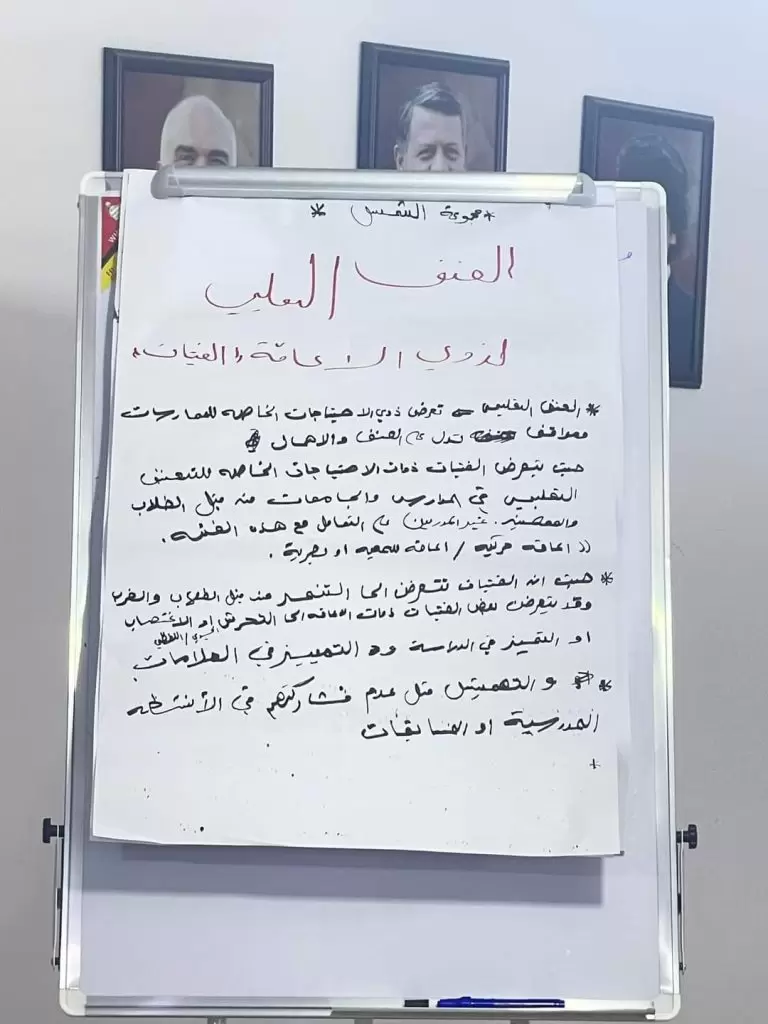 * مجموعة الشمس *
العنف التعليمي
لذوي الاعاقة "الفتيات"
* العنف التعليمي تعرض ذوي الاحتياجات الخاصه للممارسات
ومواقف تدل على العنف والاهمال
حيث يتعرض الفتيات ذوات الاحتياجات الخاصه للتعنيف
التعليمي في المدارس والجامعات من قبل الطلاب
والمعلمين. غير المدربين) على التعامل مع هذه الفئه.
(( اعاقه حركيه / اعاقه سمعيه او بصرية .
* حيث ان الفتيات تتعرض الى التنمر من قبل الطلاب والضرب
وقد يتعرض بعض الفتيات ذوات الاعاقه الى التحرش او الاغتصاب
الجسدي / اللفظي
او التقيز في الدراسة و التمييز في العلامات
* و التهميش مثل عدم مشاركتهم في الأنشطه
المدرسية او المسابقات
+